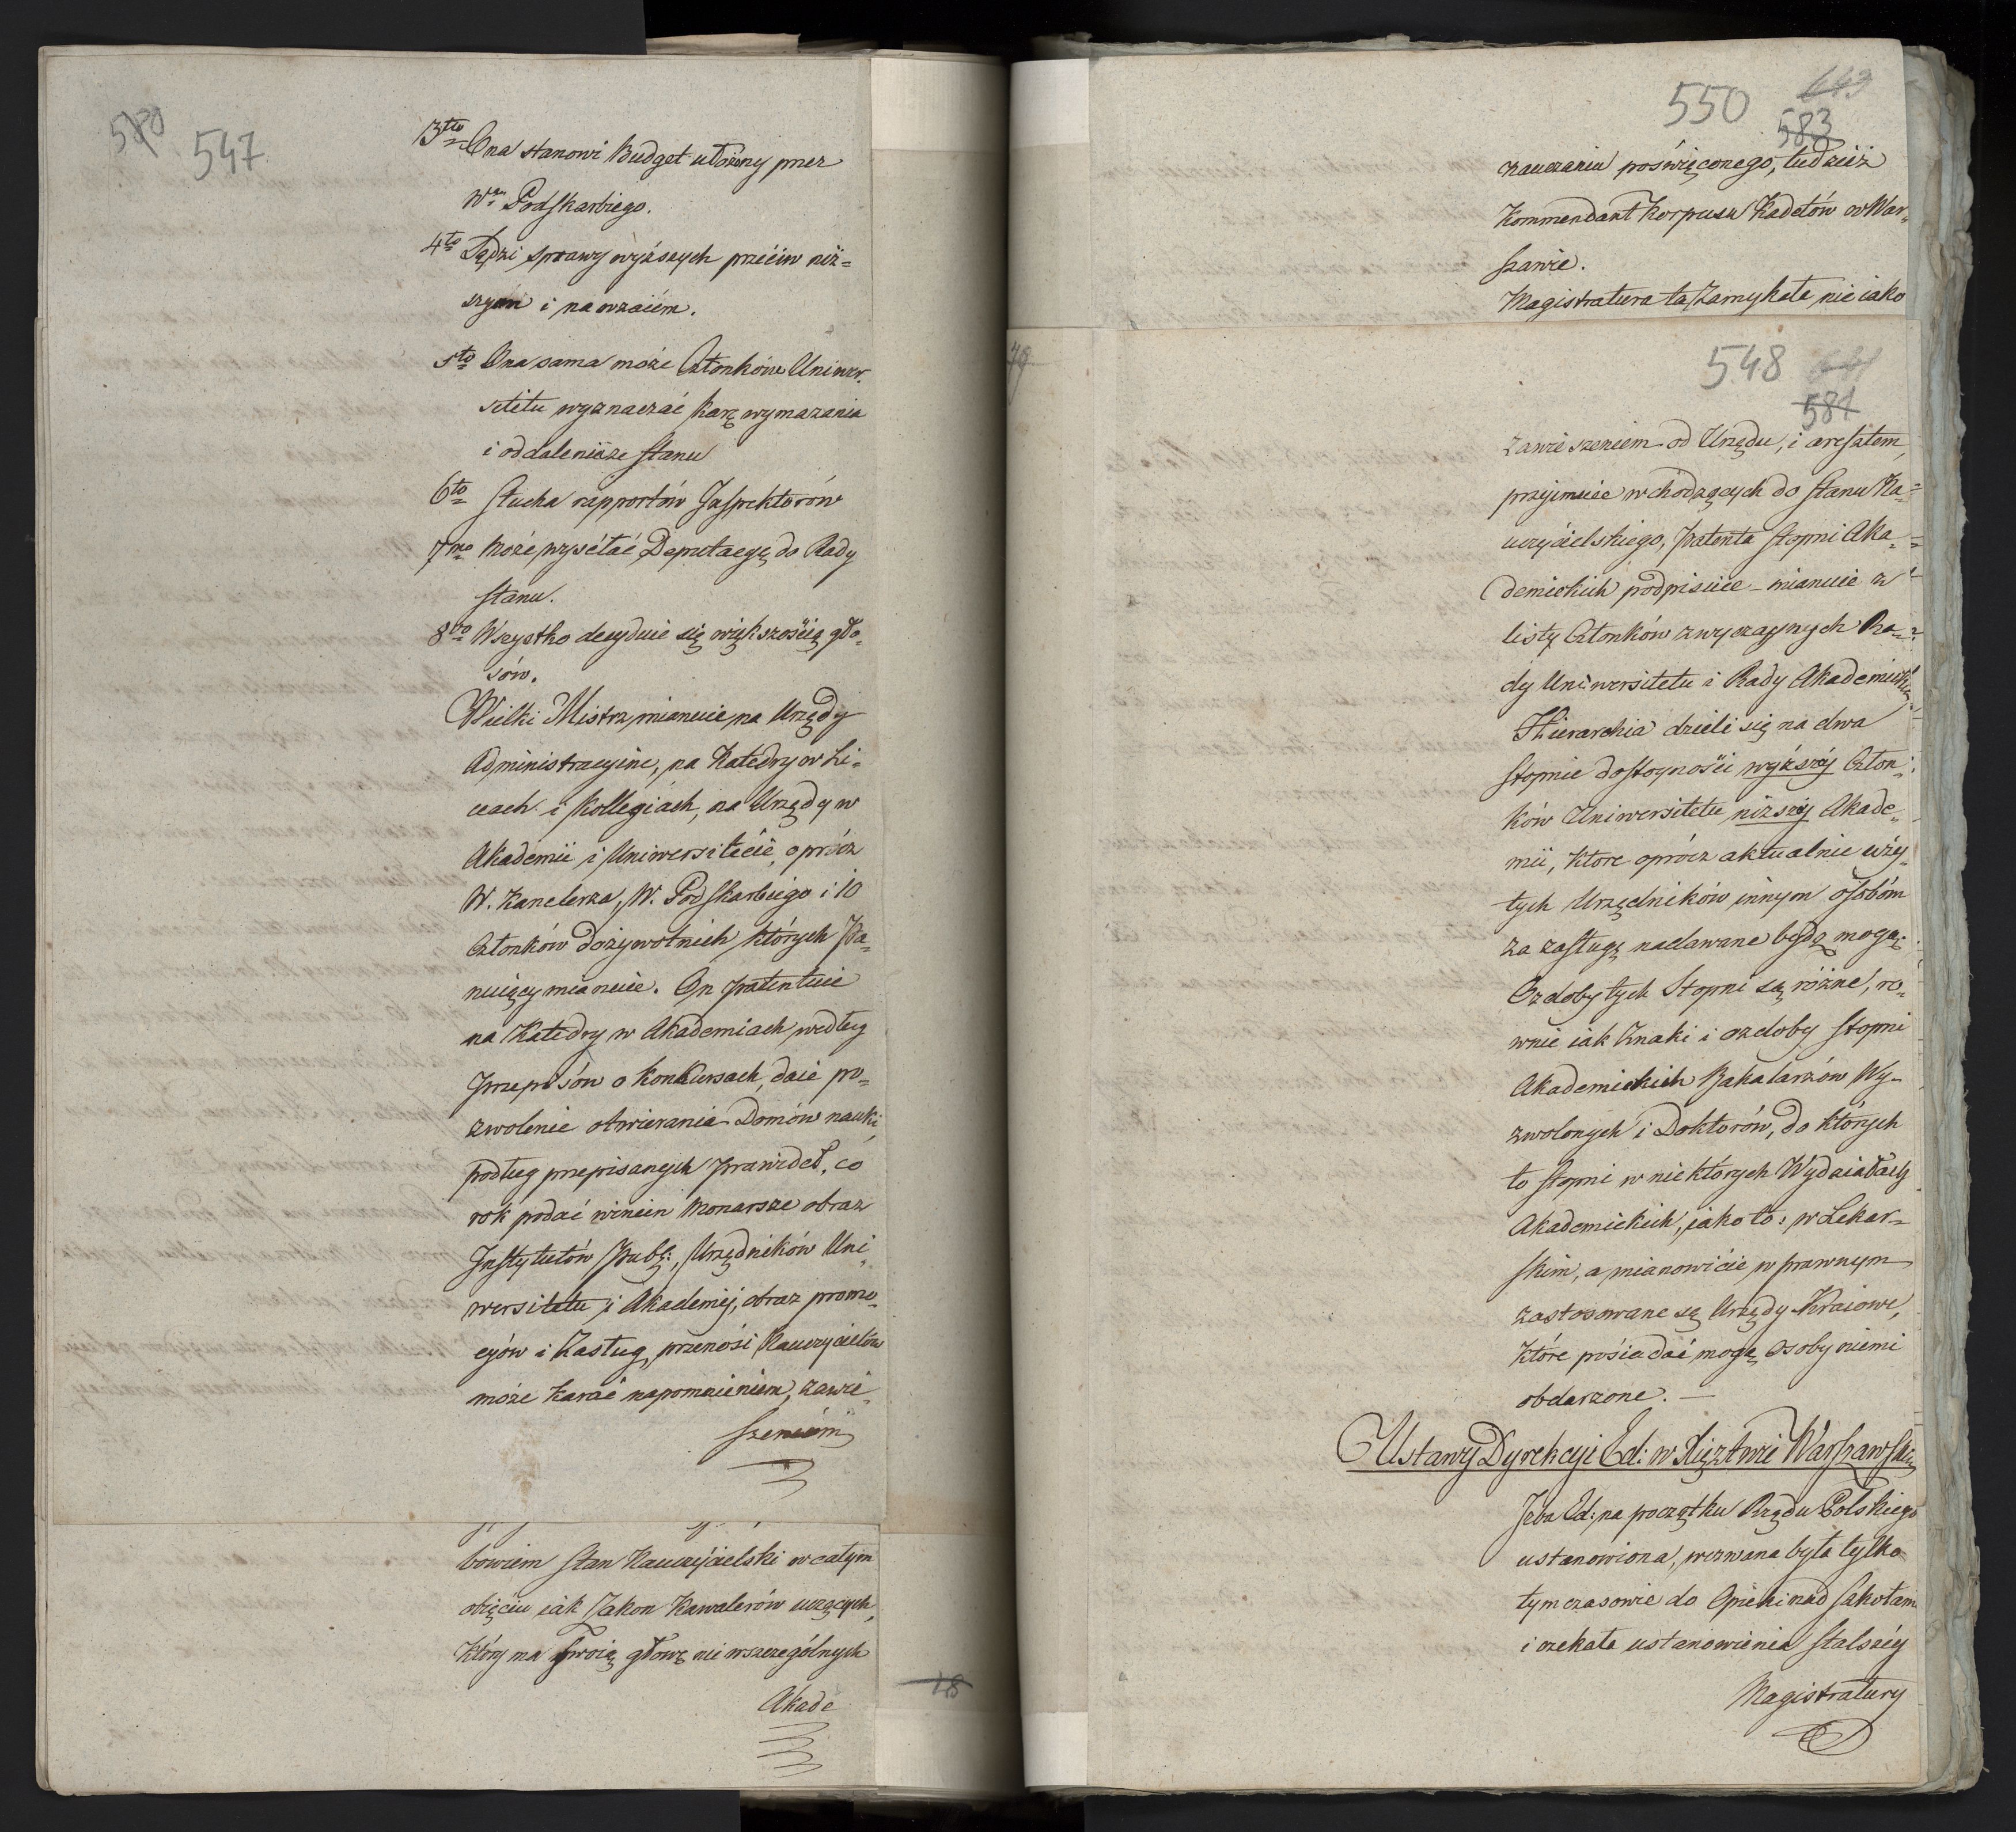 580 547
3tio Ona stanowi Budget ułożony przez
Wgo Podskarbiego.
4to Sądzi sprawy wyższych przéciw niż=
szym i nawzaiém.
5to Ona sama może Członków Uniwer,
sitetu wyznaczać karę wymazania
i oddalenia ze stanu
6to Słucha rapportów Inspektorów
7mo Może wyséłać Deputacyę do Rady
stanu.
8vo Wszystko decyduie się większością gło,
sów.
Wielki Mistrz mianuie na Urzędy
Administracyine, na Katedry w Li,
ceach i Kollegiach, na Urzędy w
Akademii i Uniwersitécie, oprócz
W. Kanclerza, W. Podskarbiego i 10
Członków dożywotnich, których Pa=
nuiący mianuie. On patentuie
na Katedry w Akademiach według
przepisów o Konkursach, daie po=
zwolenie otwierania Domów nauki,
podług przepisanych prawideł, co
rok podać winien Monarsze obraz
Instytutów Publ:, Urzędników Uni,
wersitetu i Akademij, obraz promo,
cyów i Zasług, przenosi Nauczycielów
może karać napomnieniem, zawie,
szeniém
bowiem stan Nauczycielski w całym
obięciu iak Zakon Kawalerów uczących,
który ma swoią głowę nie w szczególnych
Akade
18
550 583
nauczaniu poświęconego, tudzież
Kommendant Korpusu Kadetów w War,
szawie.
Magistratura ta zamykała nieiako
548 581
zawieszeniem od Urzędu, i aresztem,
przyimuie wchodzących do stanu Na=
uczycielskiego, Patenta stopni Aka=
demickich podpisuie - mianuie z
listy Członków zwyczaynych Ra=
dy Uniwersitetu i Rady Akademickiey
Hierarchia dzieli się na dwa
stopnie dostoyności wyższéy Człon,
ków Uniwersitetu niższéy Akade,
mii, które oprócz aktualnie uży,
tych Urzędników innym osobóm
za zasługę nadawane będą mogły.
Ozdoby tych Stopni są różne, ró,
wnie iak Znaki i ozdoby stopni
Akademickich Bakałarzów Wy=
zwolonych i Doktorów, do których
to stopni w niektórych Wydziałach
Akademickich, iako to: w Lekar=
skim, a mianowicie w prawnym
zastosowane są Urzędy Kraiowe,
które posiadać mogą osoby niemi
obdarzone. —
Ustawy Dyrekcyi Ed: w Xięztwie Warszawskiem
Izba Ed: na początku Rządu Polskiego
ustanowiona, wezwana była tylko
tymczasowie do Opieki nad szkołami
i czekała ustanowienia stalszéy
Magistratury